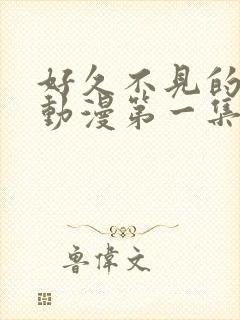 好久不見的
動漫第一集
魯偉文